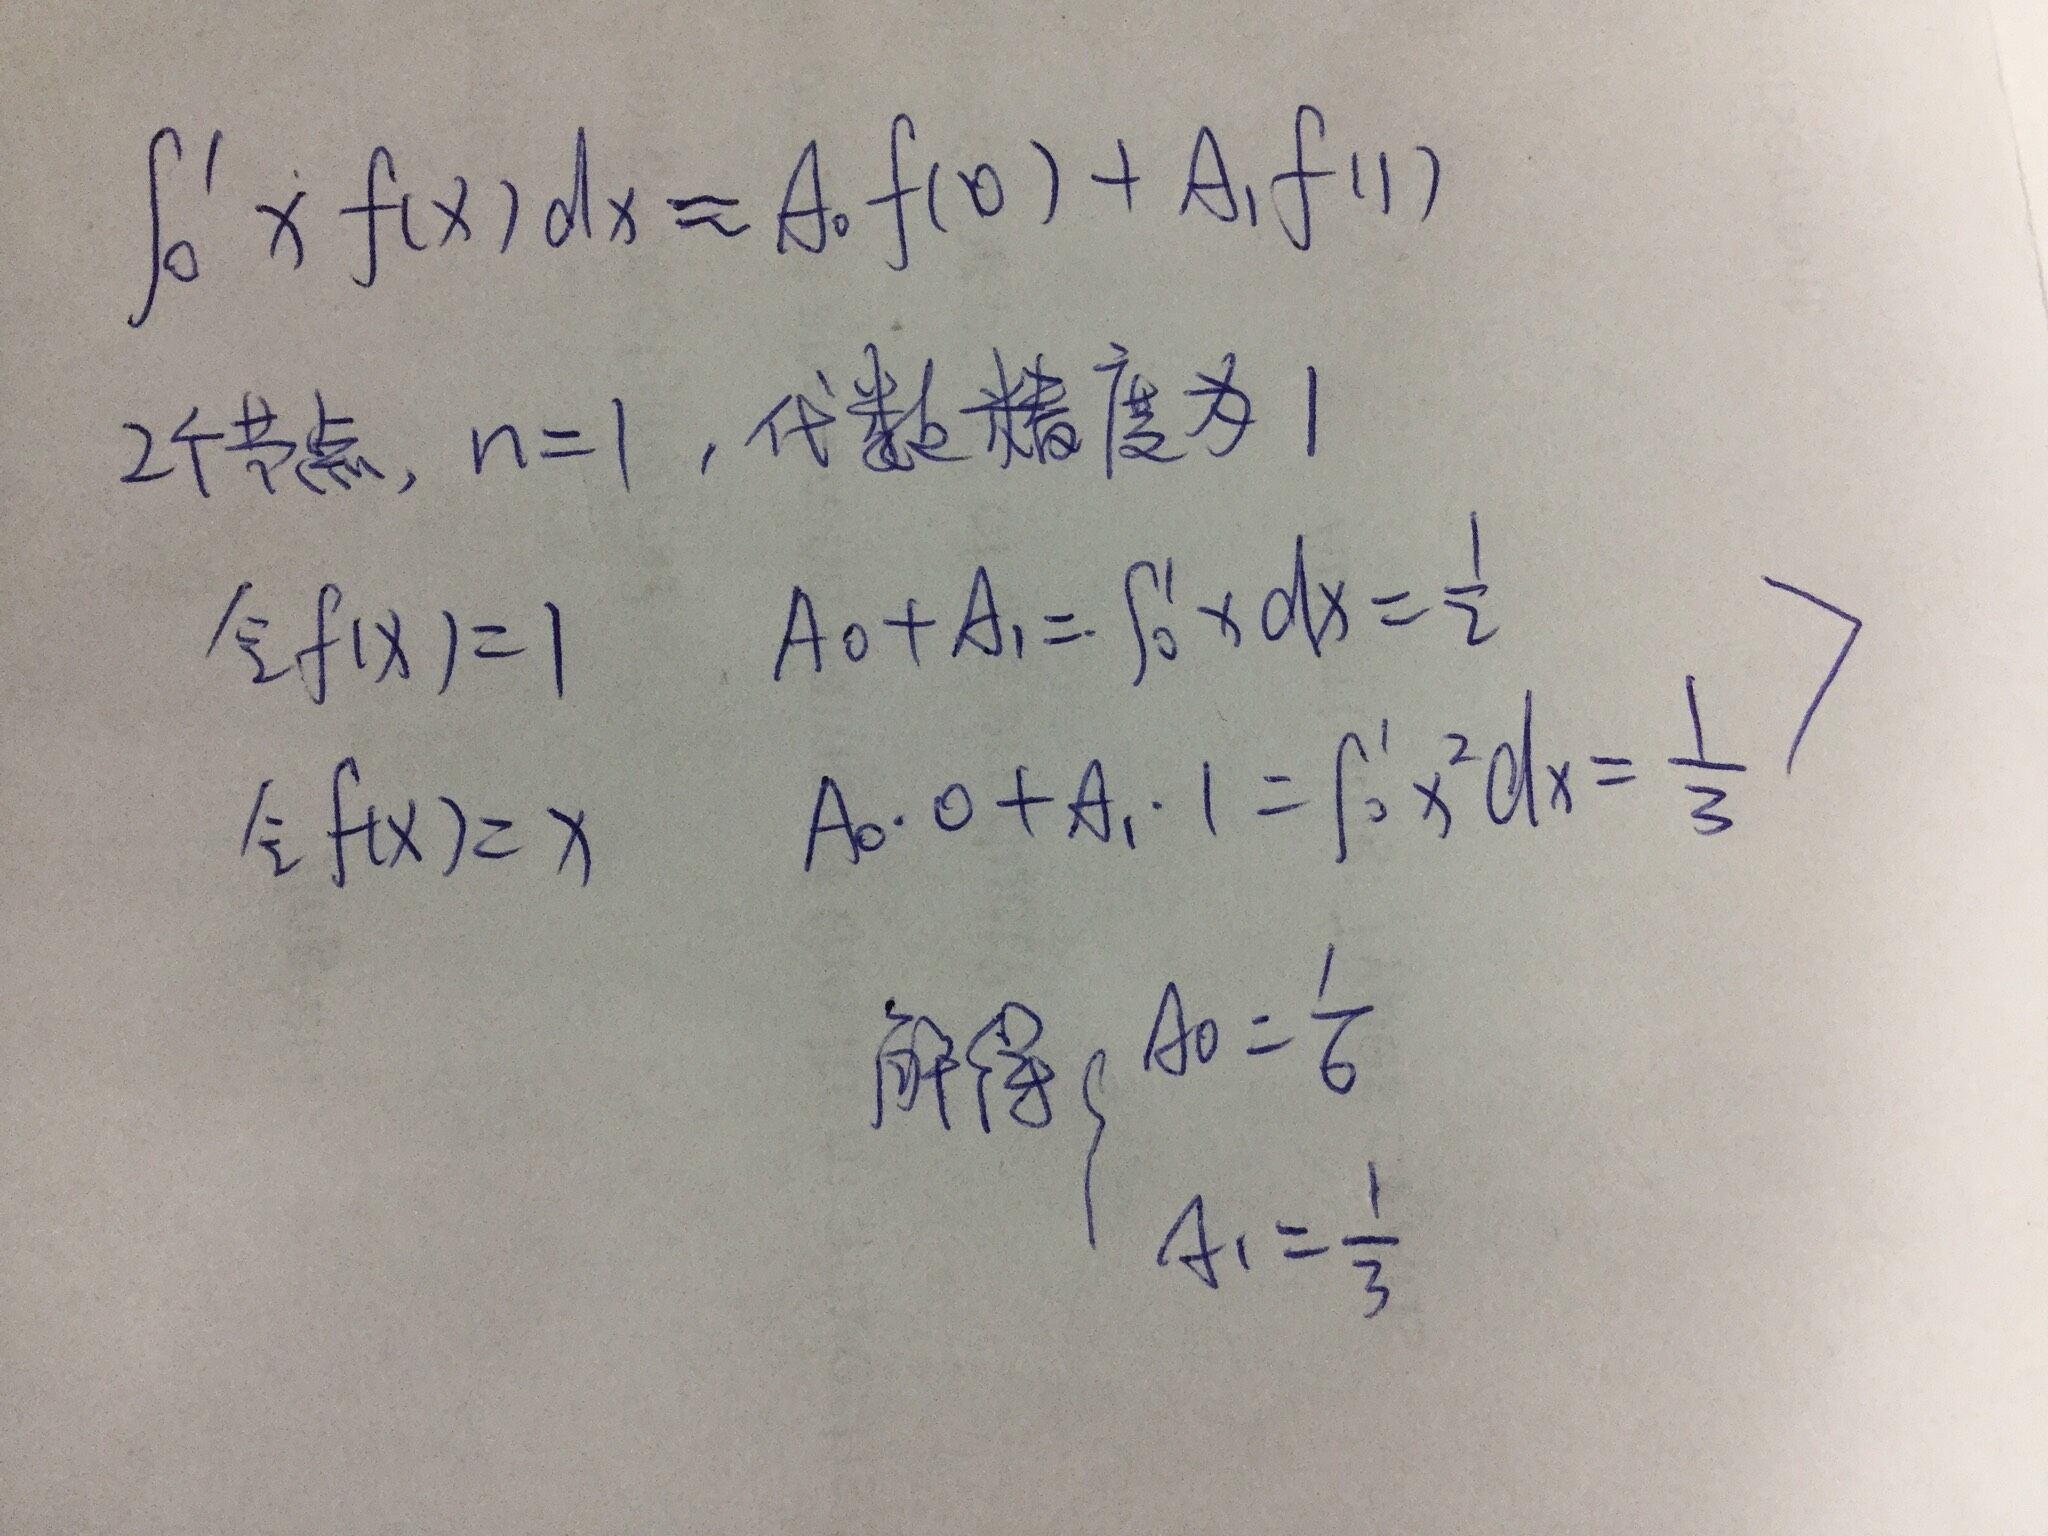 ∫₀¹ x f(x) dx ≈ A₀ f(0) + A₁ f(1)
2个节点, n=1, 代数精度为1
令f(x)=1 A₀+A₁=∫₀¹ x dx=1/2
令f(x)=x A₀·0+A₁·1=∫₀¹ x² dx=1/3
解得{ A₀=1/6
A₁=1/3